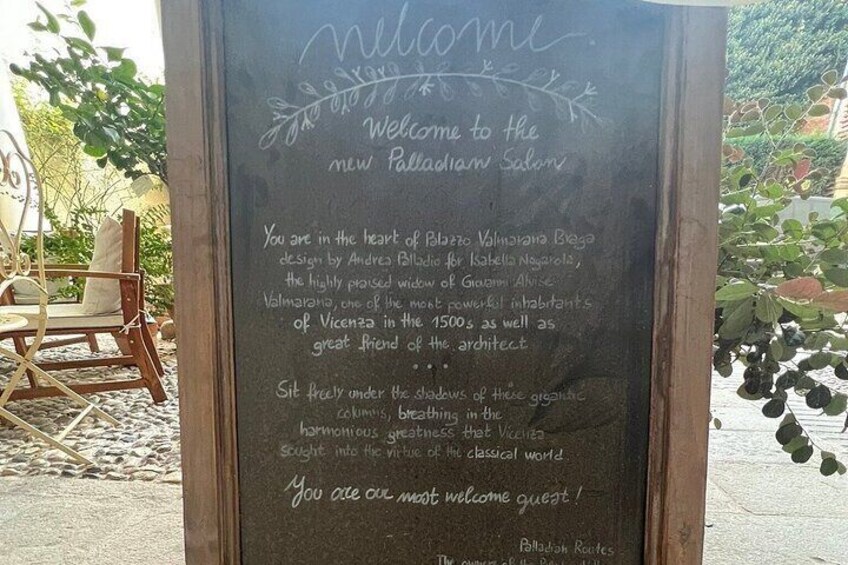 Welcome
Welcome to the
new Palladian Salon
You are in the heart of Palazzo Valmarana Braga
design by Andrea Palladio for Isabella Nogarola,
the highly praised widow of Giovanni Alvise
Valmarana, one of the most powerful inhabitants
of Vicenza in the 1500s as well as
great friend of the architect
Sit freely under the shadows of these gigantic
columns, breathing in the
harmonious greatness that Vicenza
sought into the virtue of the classical world.
You are our most welcome guest!
Palladian Routes
The owners of the